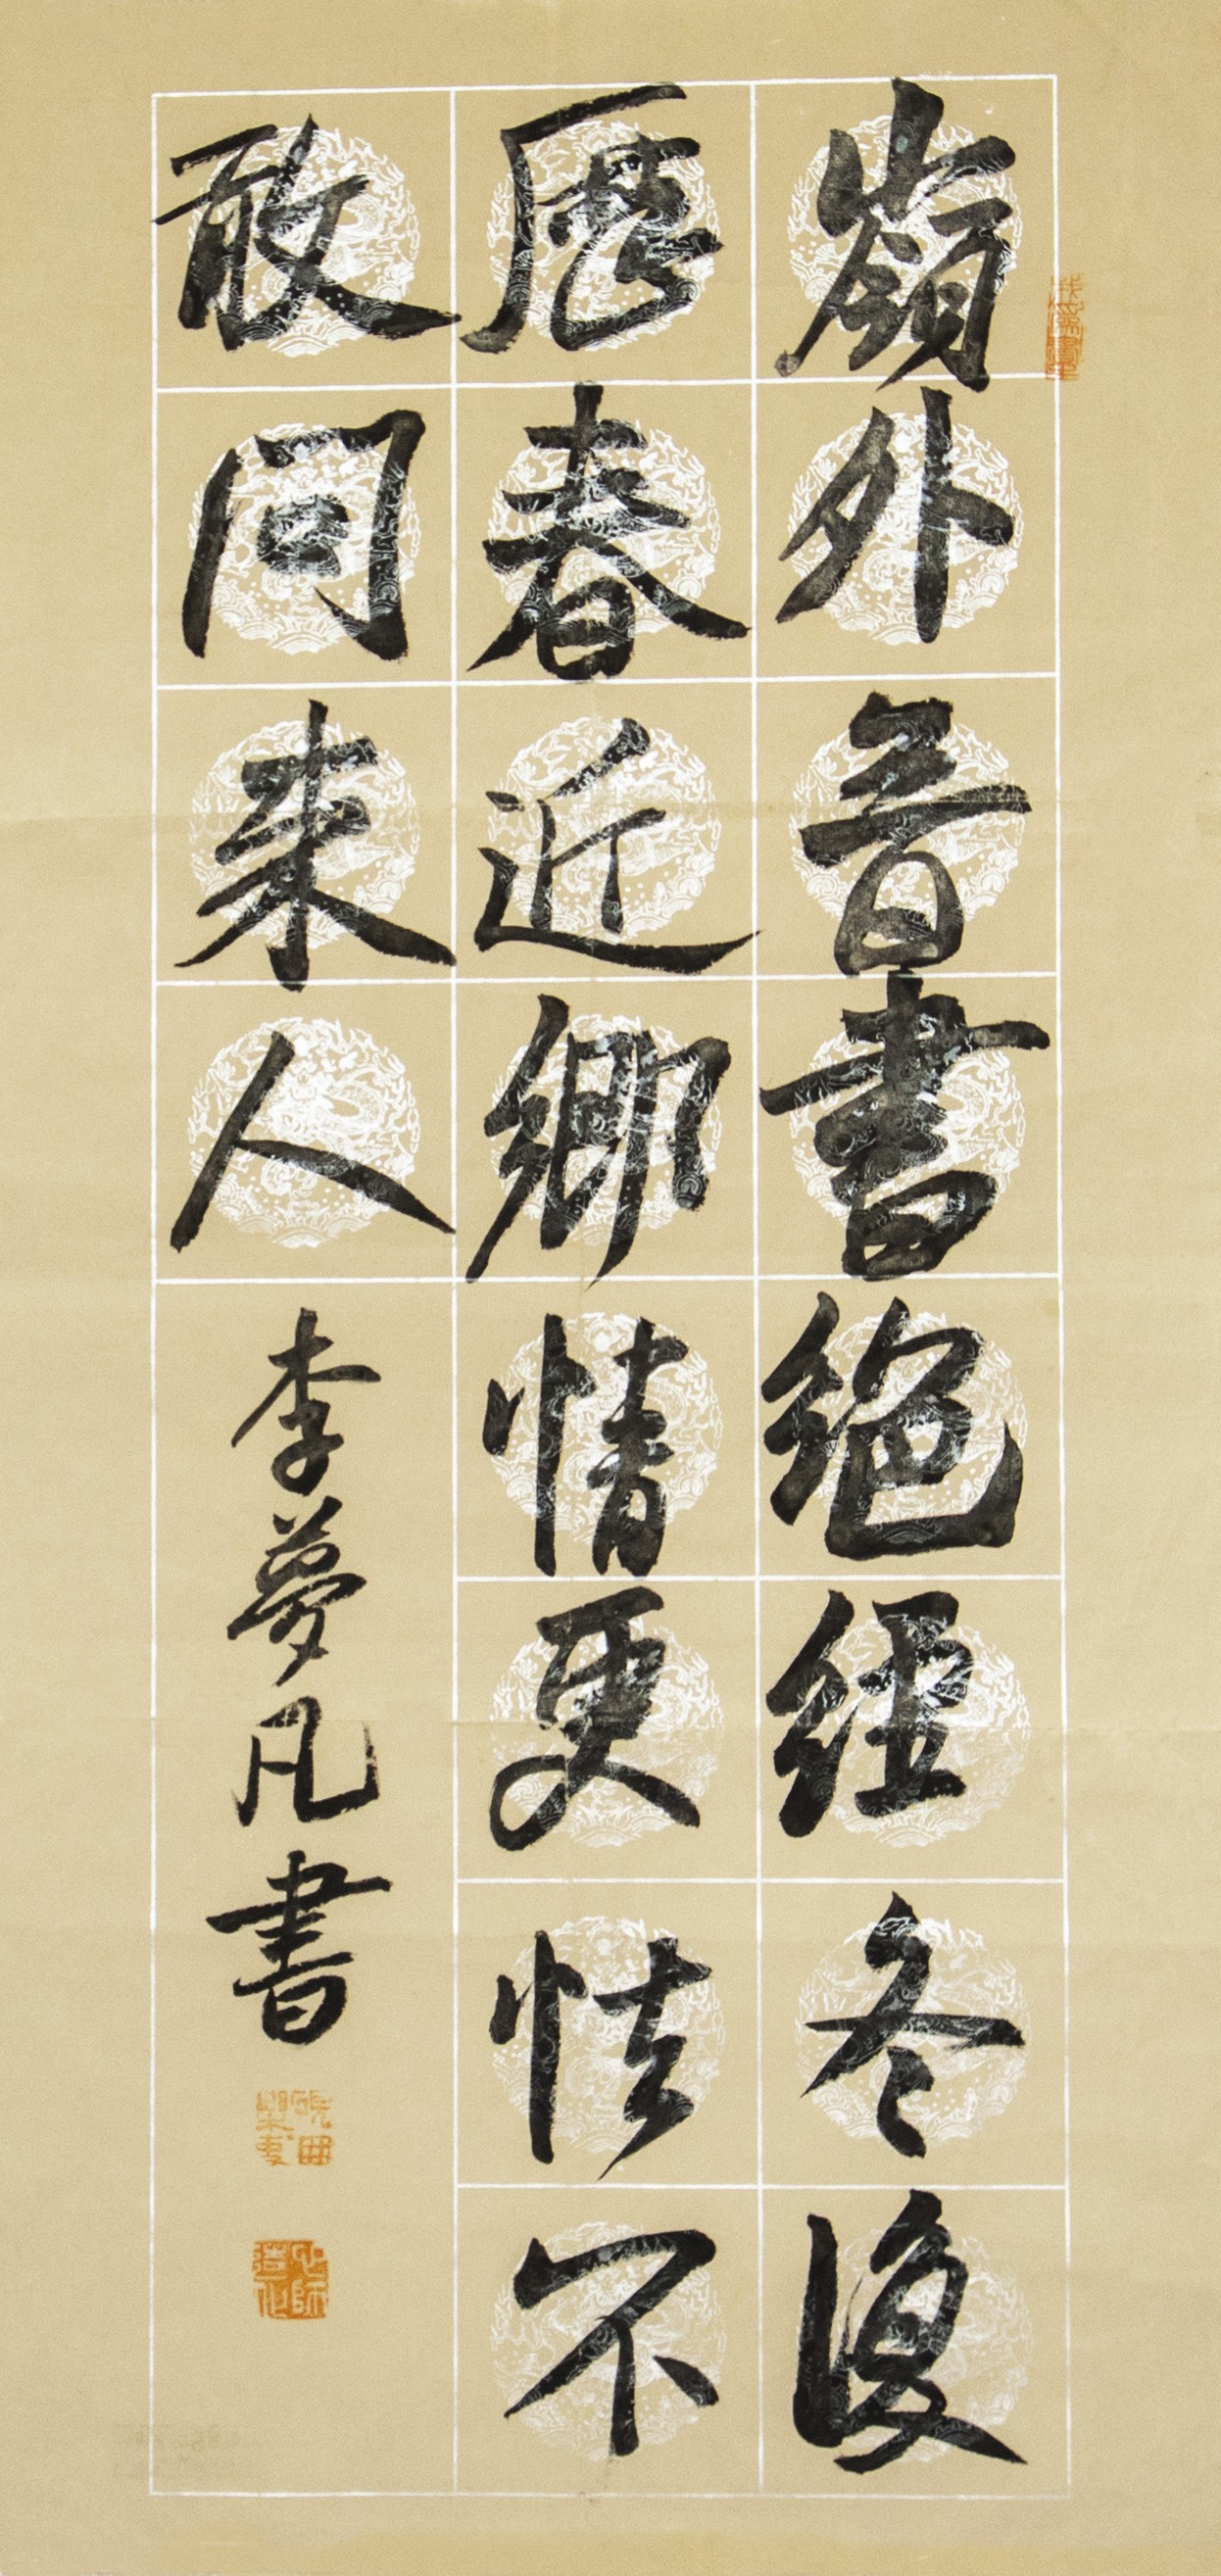 嶺外音書絕經冬復
歷春近鄉情更怯不
敢問來人
李夢凡書